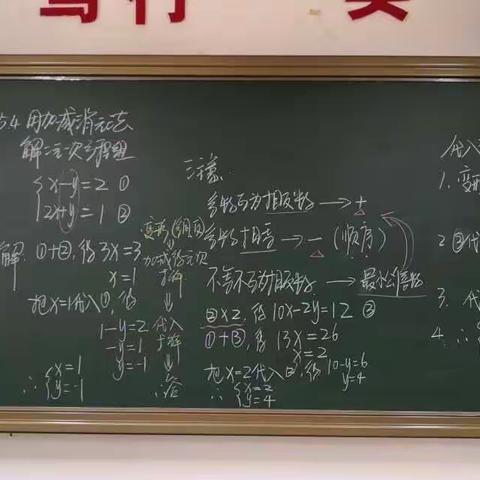 5.4 用加减消元法
解二元一次方程组
{x-y=2 ①
2x+y=1 ②
解: ①+②, 得 3x=3
x=1
把x=1代入①, 得
1-y=2
-y=1
y=-1
∴ {x=1
y=-1
变形(同页)
加减消元
求解
代入
求解
注意:
系数互为相反数 → +
系数相等 → - (顺序)
不等不互为相反数 → 最小公倍数
②×2, 得 10x-2y=12 ③
①+③, 得 13x=26
x=2
把x=2代入②, 得 10-y=6
y=4
∴ {x=2
y=4
代入
1. 变形
2. 代
3. 代
4. ∴